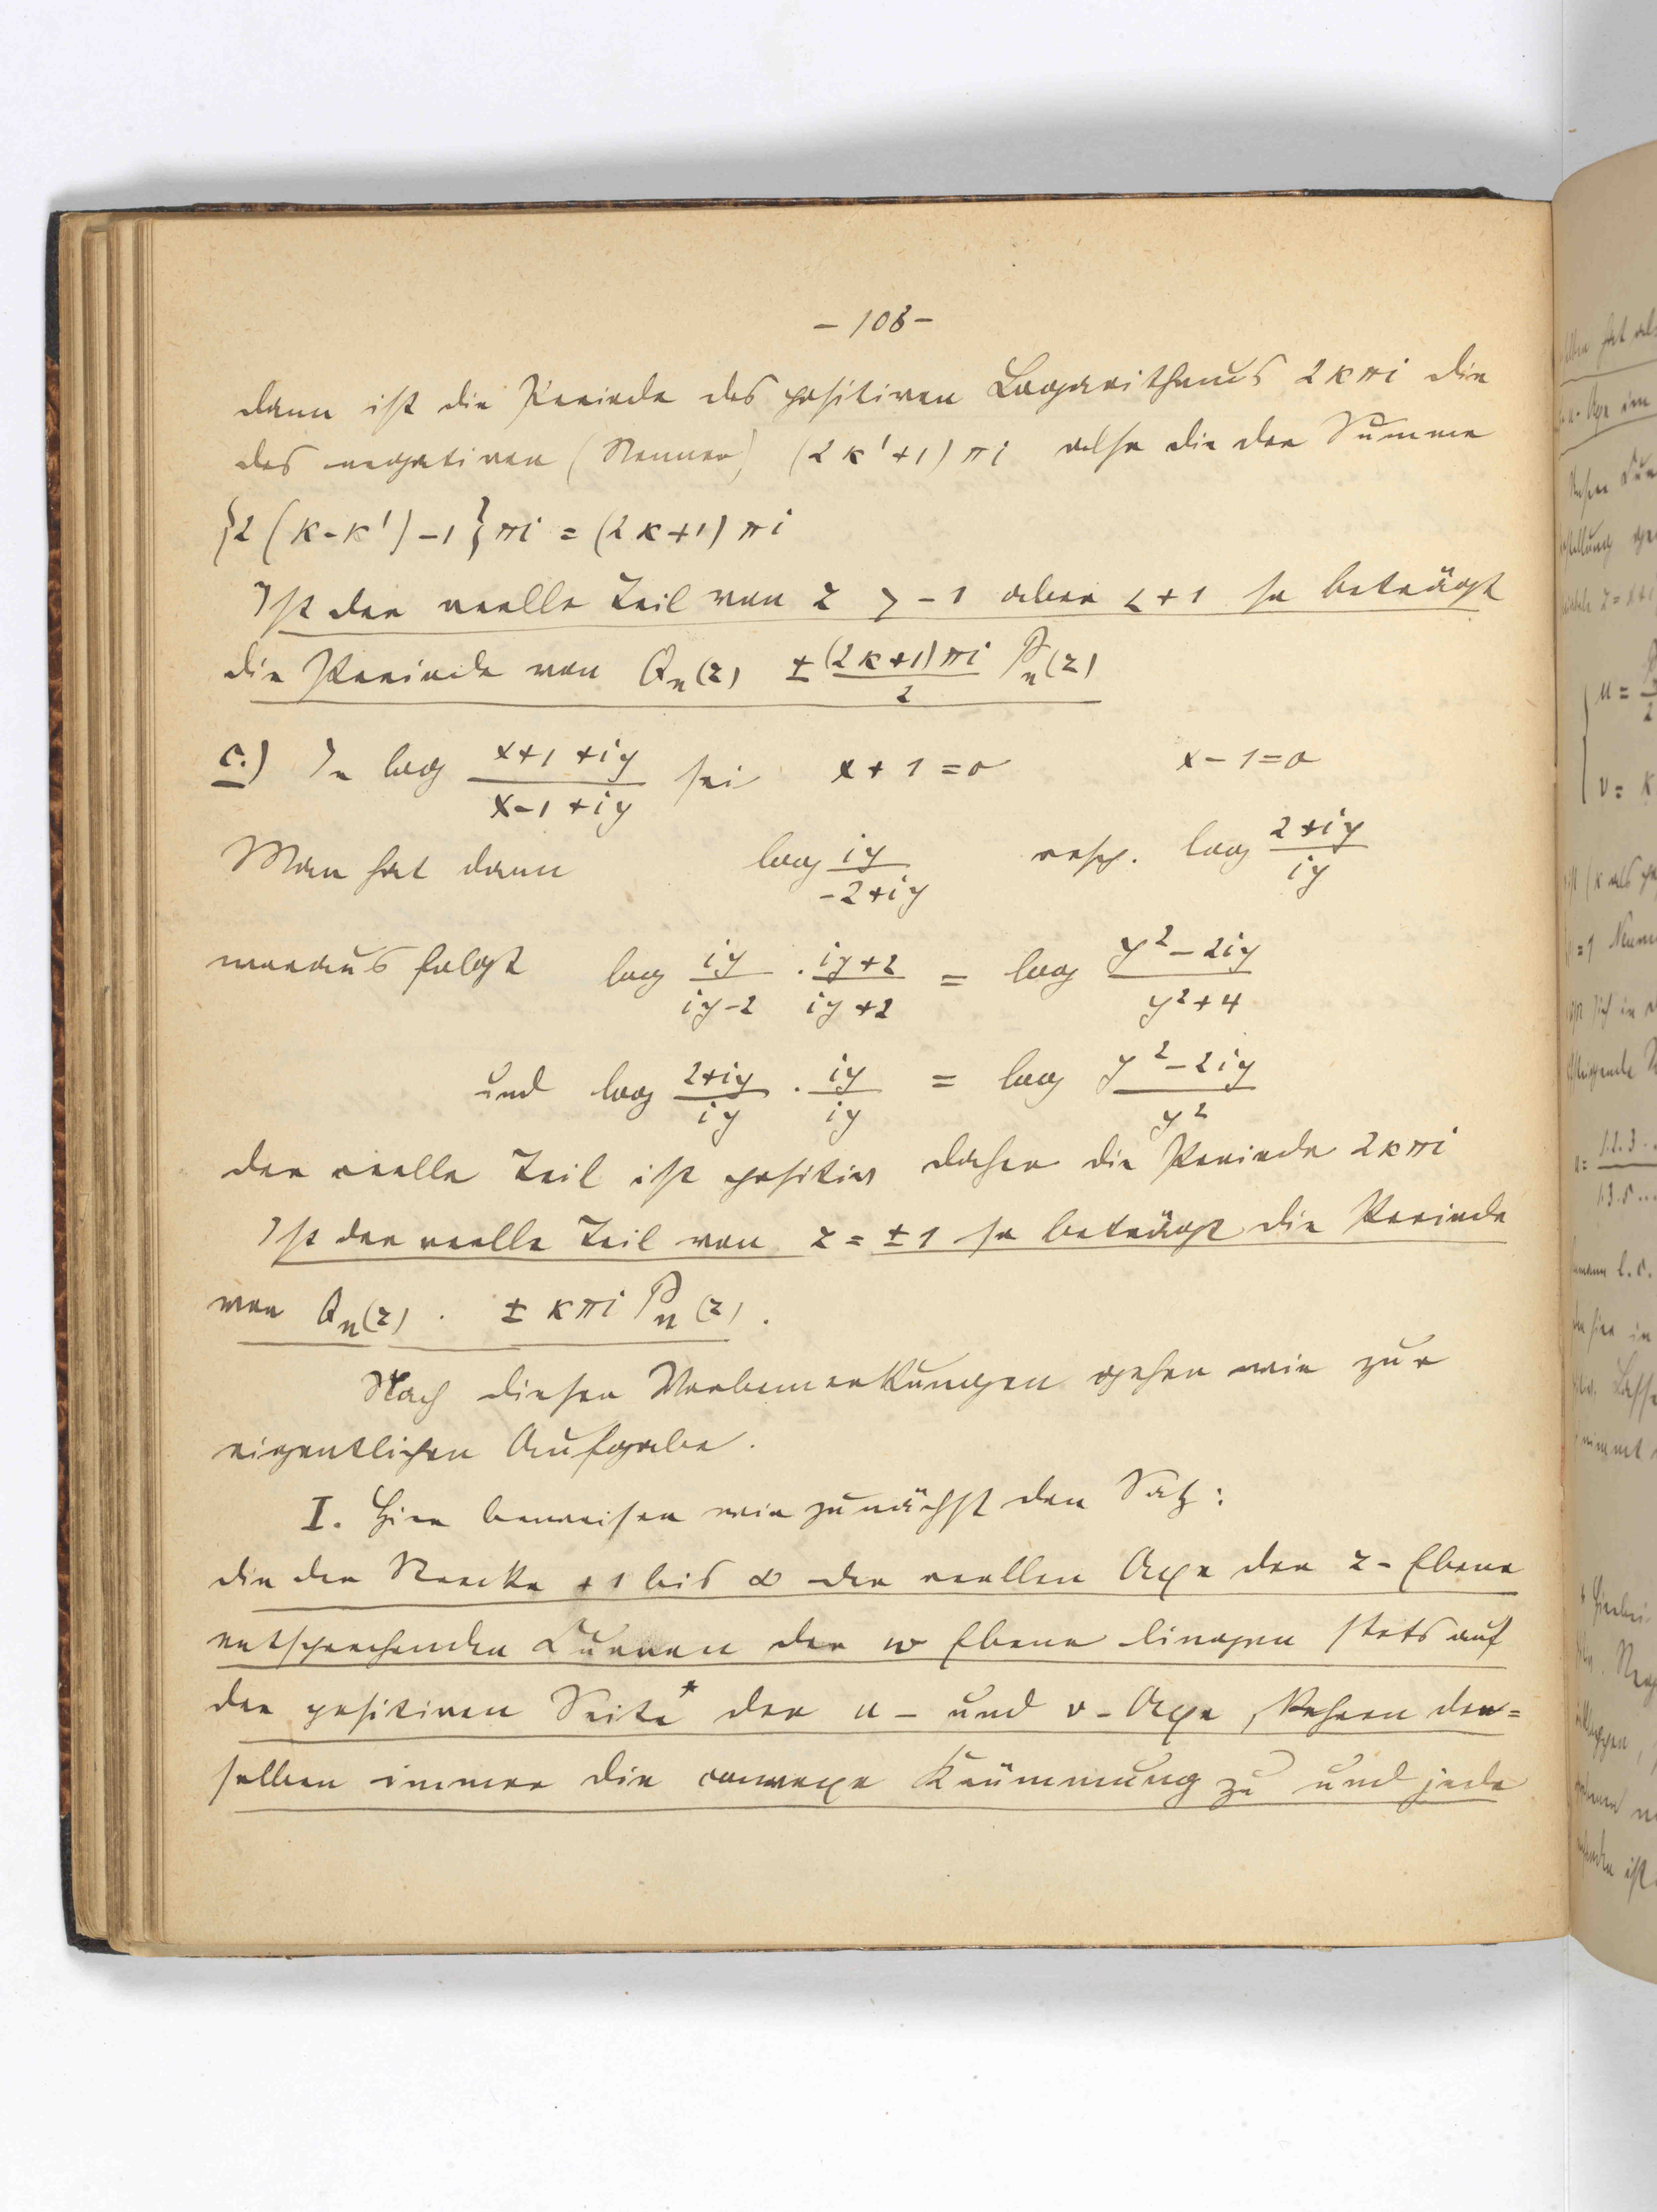 – 108 –
dann ist die Periode des positiven Logarithmus 2kπi die
des negativen (Nenner) (2k'+1)πi also die der Summe
{2(k-k')-1}πi = (2k+1)πi
Ist der reelle Teil von z > -1 aber < +1 so beträgt
die Periode von Qn(z) ± (2k+1)πi/2 Pn(z)
c.) In log (x+1+iy)/(x-1+iy) sei x+1=0 x-1=0
Man hat dann log iy/(-2+iy) resp. log (2+iy)/iy
woraus folgt log iy/(iy-2) · (iy+2)/(iy+2) = log (y²-2iy)/(y²+4)
und log (2+iy)/iy · iy/iy = log (y²-2iy)/y²
der reelle Teil ist positiv daher die Periode 2kπi
Ist der reelle Teil von z = ±1 so beträgt die Periode
von Qn(z). ± kπi Pn(z).
Nach diesen Vorbemerkungen gehen wir zur
eigentlichen Aufgabe.
I. Hier beweisen wir zunächst den Satz:
die der Strecke +1 bis ∞ der reellen Axe der z-Ebene
entsprechenden Curven der w Ebene liegen stets auf
der positiven Seite* der u- und v-Axe, kehren der=
selben immer die convexe Krümmung zu und jede